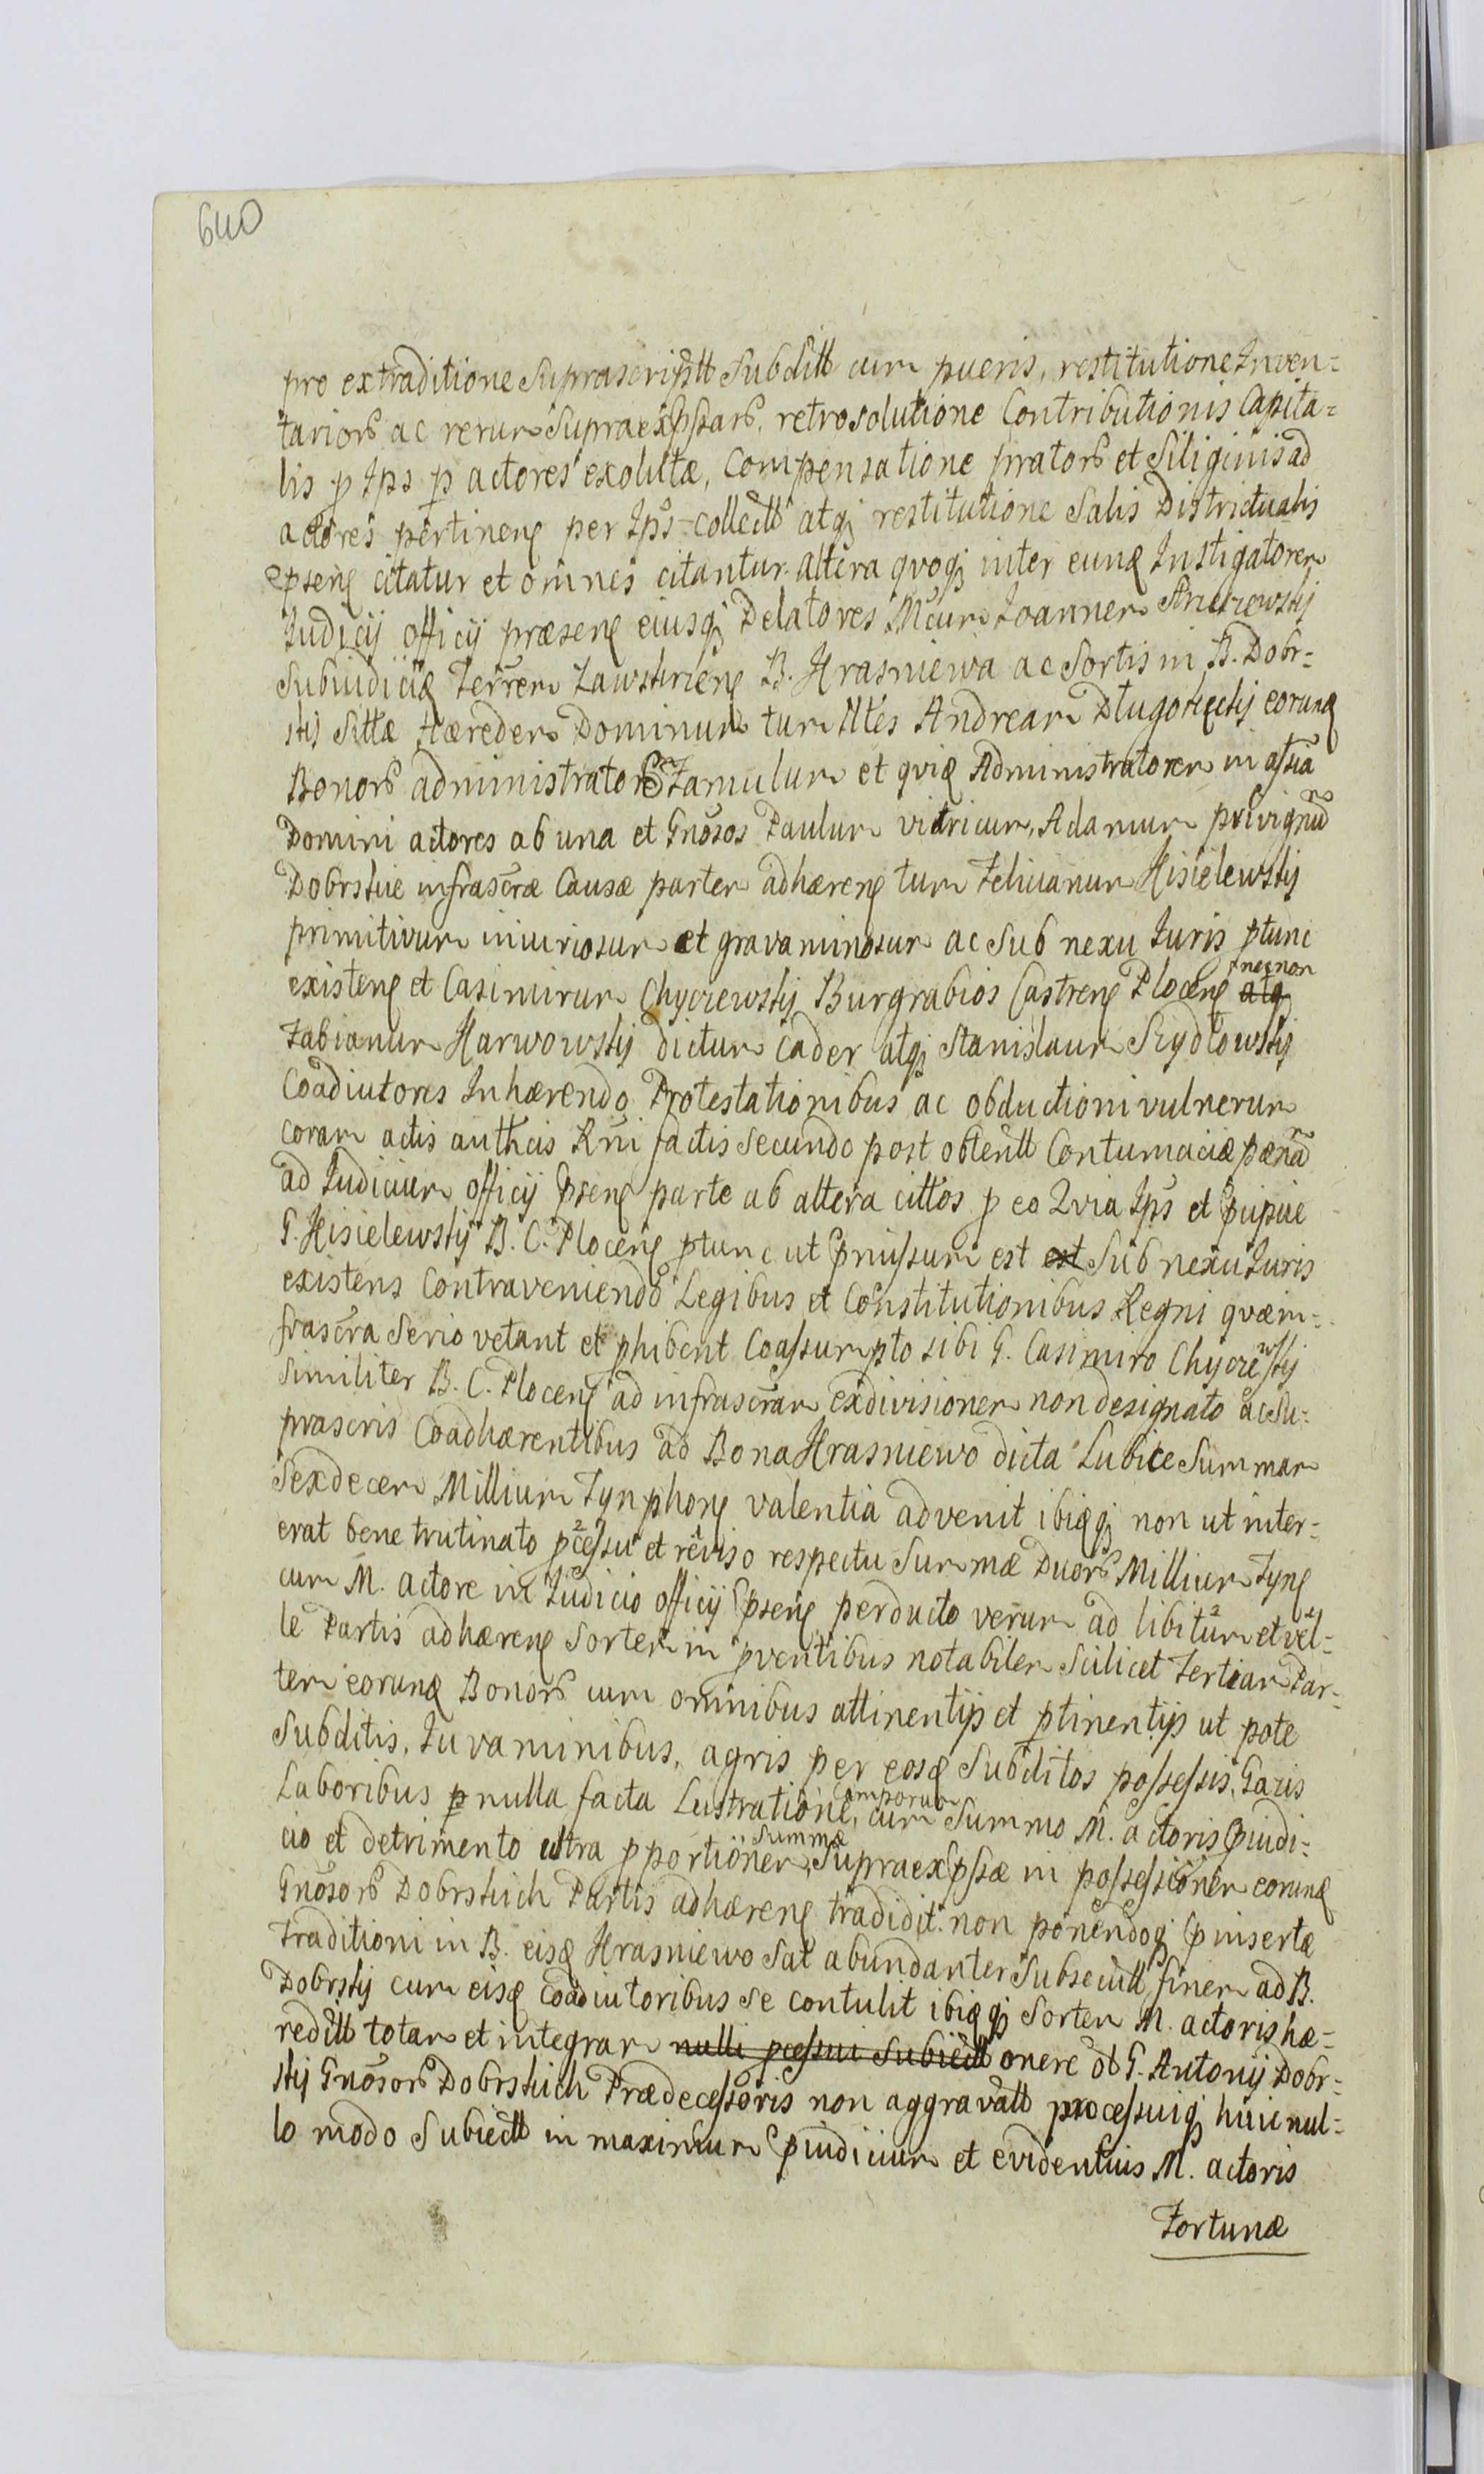 640
pro extraditione Suprascriptt Subditt cum pueris, restitutione Inven=
tarior ac rerum Supraexpssar, retrosolutione Contributionis Capita=
lis p Ips p actores exolutæ, Compensatione prator et Siliginis ad
actores pertinen per Ips collectt atq restitutione Salis Districtualis
pseñ citatur et omnes citantur. altera qvoq inter eund Instigatorem
Judicij officij præsen eiusq Delatores Mcum Joannem
Subiudicem Terrem Zawskrzen B. Krasniewa ac Sortis in B. Dobr=
skij Sittæ Hæredem Dominum tum Nles Andream Dlugołęckij eorund
Bonor administratorem Famulum et qvid Administratorem in assia
Domini actores ab una et Gnosos Paulum vitricum, Adamum privignũ
Dobrskie infrascræ Causæ partem adhæren tum Felicianum Kisielewskij
primitivum iniuriosum et gravaminosum ac Sub nexu Juris ptunc
existen et Casimirum Chyczewskij Burgrabios Castren Plocen atq necnon
Fabianum Karwowskij dictum Cader atq Stanislaum Szydłowskij
Coadiutores Inhærendo Protestationibus ac obductioni vulnerum
coram actis authcis Rñi factis Secundo post obtentt Contumaciæ pænã
ad Judicium officij pseñ parte ab altera cittos p eo Qvia Ips et pcipue
G. Kisielewskij B. C. Plocen ptunc ut pmissum est est Sub nexu Juris
existens Contraveniendo Legibus et Constitutionibus Regni qvæ in=
frascra Serio vetant et phibent Coassumpto sibi G. Casimiro Chyczewskij
Similiter B. C. Plocen ad infrascram exdivisionem non designato ac Su=
prascris Coadhærentibus ad Bona Krasniewo dicta Lubice Summam
Sexdecem Millium Tynphon valentia advenit ibidq non ut inter=
erat bene trutinato pcessu et reviso respectu Summæ Duor Millium Tyn
cum M. actore in Judicio officij pseñ perducto verum ad libitum et vel=
le Partis adhæren Sortem in pventibus notabilem Scilicet Tertiam Par=
tem eorund Bonor cum omnibus attinentijs et ptinentijs ut pote
Subditis, Juvaminibus, agris per eosd Subditos possessis, Gazis
Laboribus p nulla facta Lustratione, Camporum cum Summo M. actoris piudi=
cio et detrimento ultra pportionem Summæ Supraexpssæ in possessionem eorund
Gnosor Dobrskich Partis adhæren tradidit. non ponendoq pinsertæ
Traditioni in B. eisd Krasniewo Sat abundanter Subsecutt finem ad B.
Dobrskij cum eisd Coadiutoribus se contulit ibidq Sortem M. actoris hæ=
reditt totam et integram nulli pcessui Subiectt onere ob G. Antonij Dobr=
skij Gnosor Dobrskich Prædecessoris non aggravatt processuiq huic nul=
lo modo Subiectt in maximum piudicium et evidentius M. actoris
Fortunæ